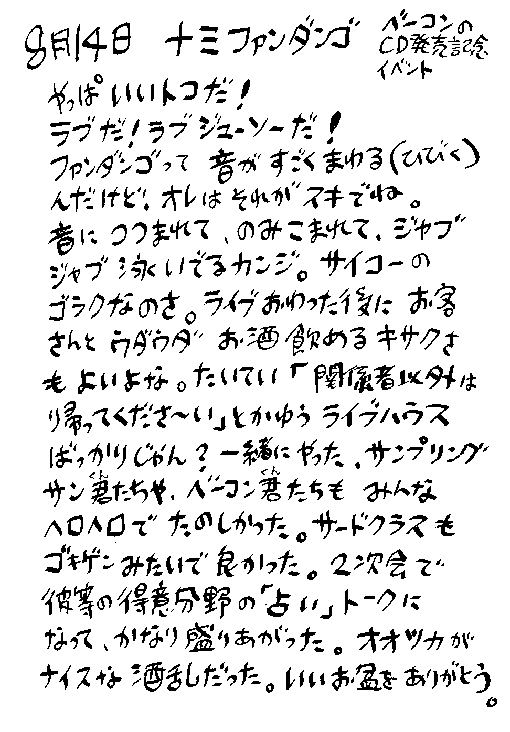 8月14日 十三ファンダンゴ
ベーコンの
CD発売記念
イベント
やっぱいいトコだ!
ラブだ!ラブジューソーだ!
ファンダンゴって 音がすごくまわる(ひびく)
んだけど、オレはそれがスキでね。
音につつまれて、のみこまれて、ジャブ
ジャブ泳いでるカンジ。サイコーの
ゴラクなのさ。ライブおわった後に お客
さんと ウダウダ お酒飲めるキサクさ
もよいよな。たいてい「関係者以外は
帰ってくださ〜い」とかゆう ライブハウス
ばっかりじゃん?一緒にやった、サンプリング
サン君たちや、ベーコン君たちも みんな
ヘロヘロで たのしかった。サードクラスも
ゴキゲンみたいで良かった。2次会で
彼等の得意分野の「占い」トークに
なって、かなり盛りあがった。オオツカが
ナイスな 酒乱だった。いいお盆をありがとう。